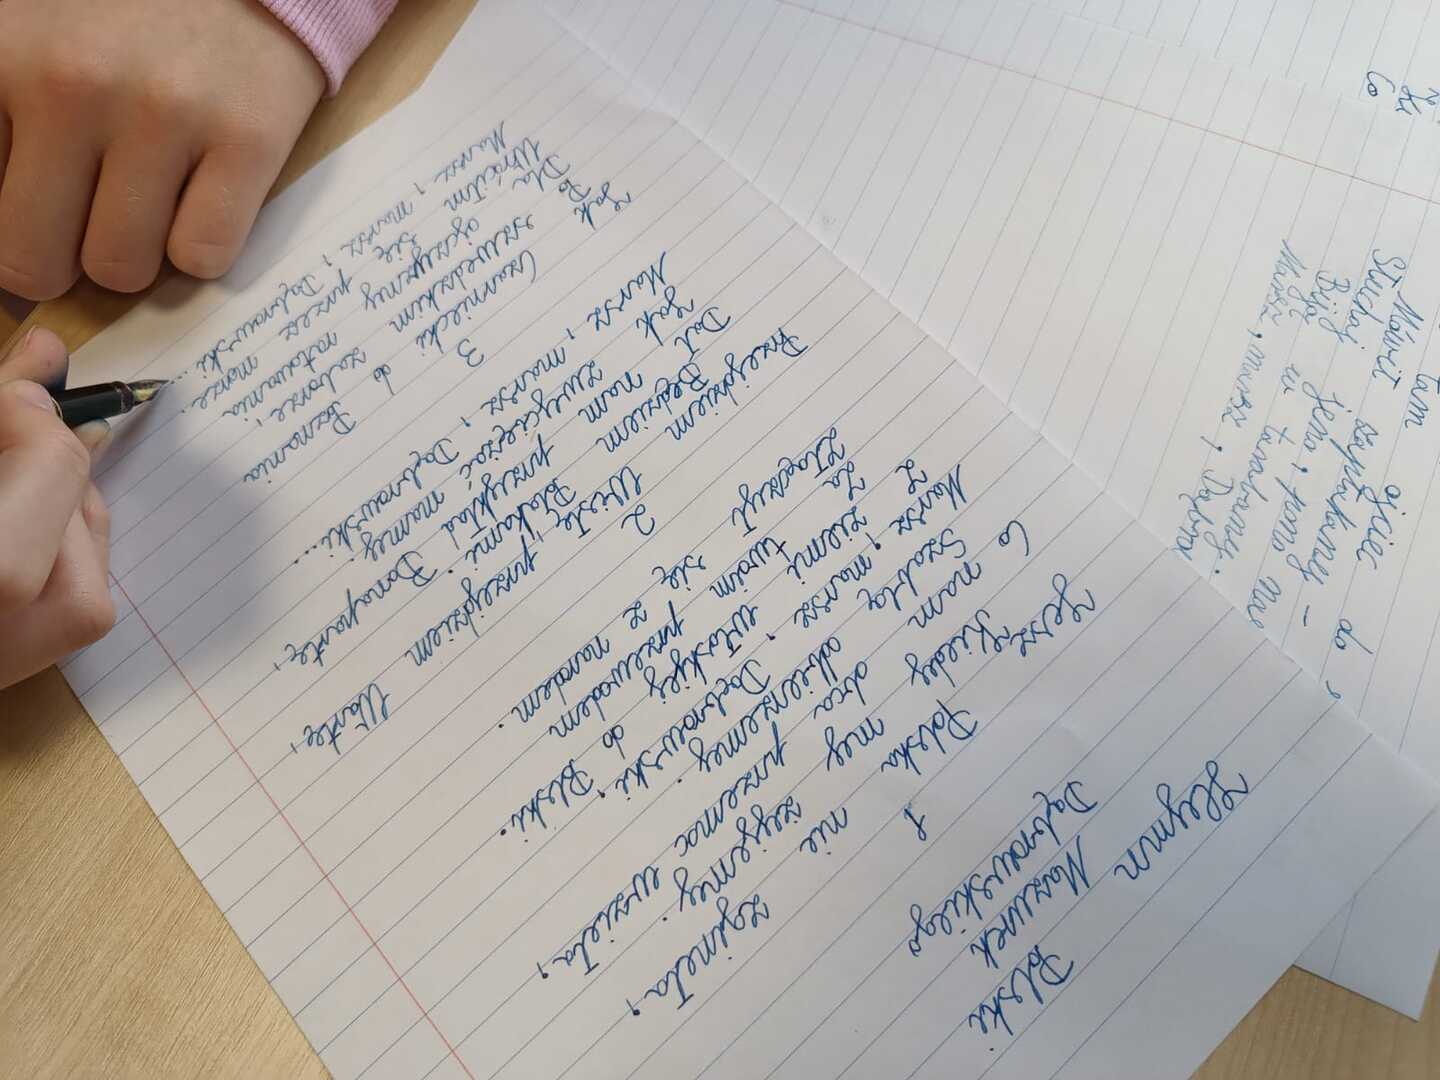 Hymn Polski
Mazurek
Dąbrowskiego
1
Jeszcze Polska nie zginęła,
Kiedy my żyjemy.
Co nam obca przemoc wzięła,
Szablą odbierzemy.
Marsz, marsz, Dąbrowski,
Z ziemi włoskiej do Polski.
Za twoim przewodem
Złączym się z narodem.
2
Przejdziem Wisłę, przejdziem Wartę,
Będziem Polakami
Dał nam przykład Bonaparte,
Jak zwyciężać mamy.
Marsz, marsz, Dąbrowski...
3
Jak Czarniecki do Poznania
Po szwedzkim zaborze,
Dla ojczyzny ratowania
Wrócim się przez morze.
Marsz, marsz, Dąbrowski...
tam ojciec do
Mówił
Słuchaj
w tarabany.
Marsz, marsz, Dąbro
Co